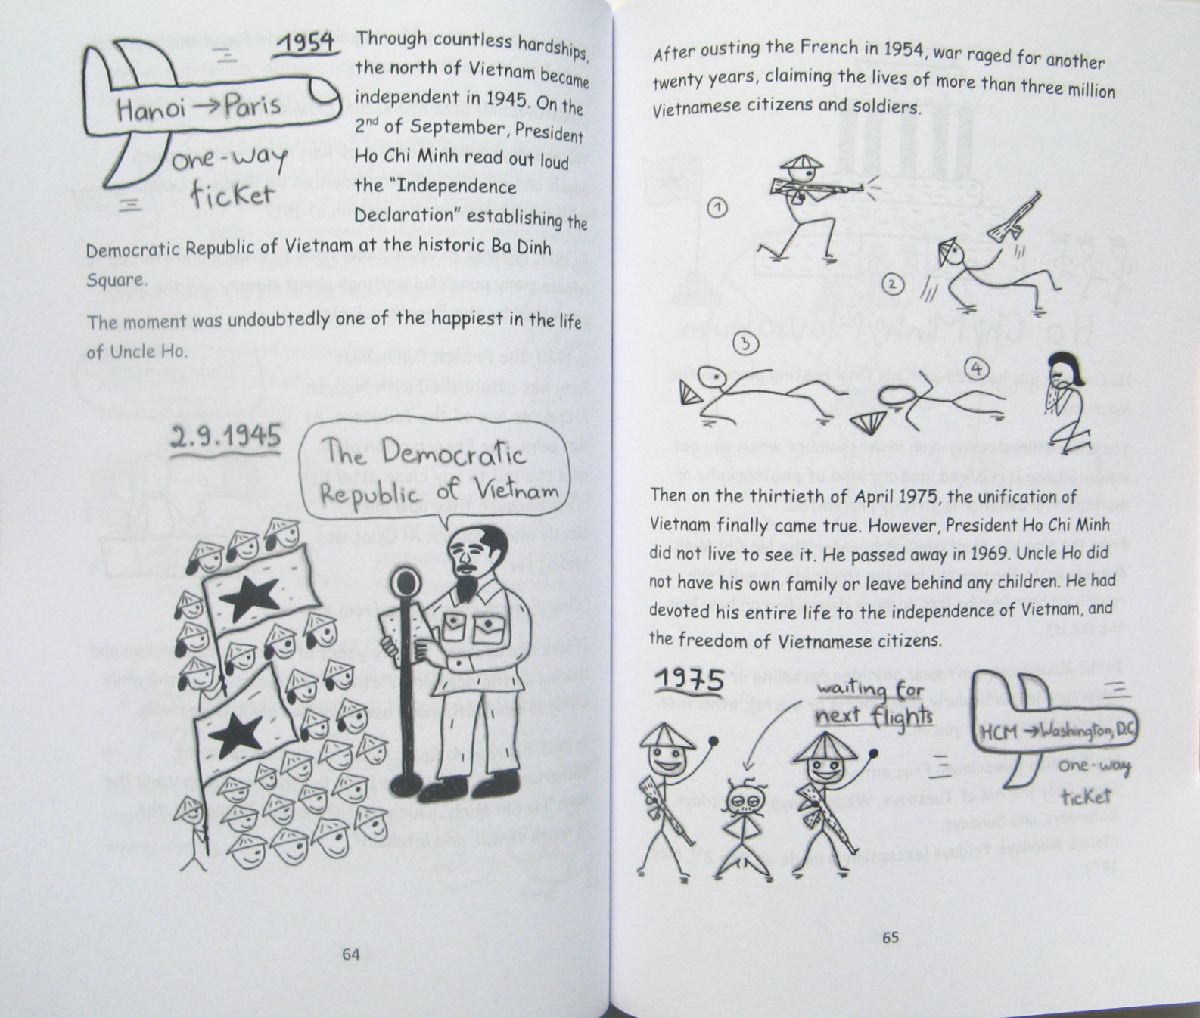 1954
Hanoi → Paris
one-way
ticket
Through countless hardships,
the north of Vietnam became
independent in 1945. On the
2nd of September, President
Ho Chi Minh read out loud
the “Independence
Declaration” establishing the
Democratic Republic of Vietnam at the historic Ba Dinh
Square.
The moment was undoubtedly one of the happiest in the life
of Uncle Ho.
2.9.1945
The Democratic
Republic of Vietnam
64
After ousting the French in 1954, war raged for another
twenty years, claiming the lives of more than three million
Vietnamese citizens and soldiers.
1
2
3
4
Then on the thirtieth of April 1975, the unification of
Vietnam finally came true. However, President Ho Chi Minh
did not live to see it. He passed away in 1969. Uncle Ho did
not have his own family or leave behind any children. He had
devoted his entire life to the independence of Vietnam, and
the freedom of Vietnamese citizens.
1975
waiting for
next flights
HCM → Washington, D.C
one-way
ticket
65